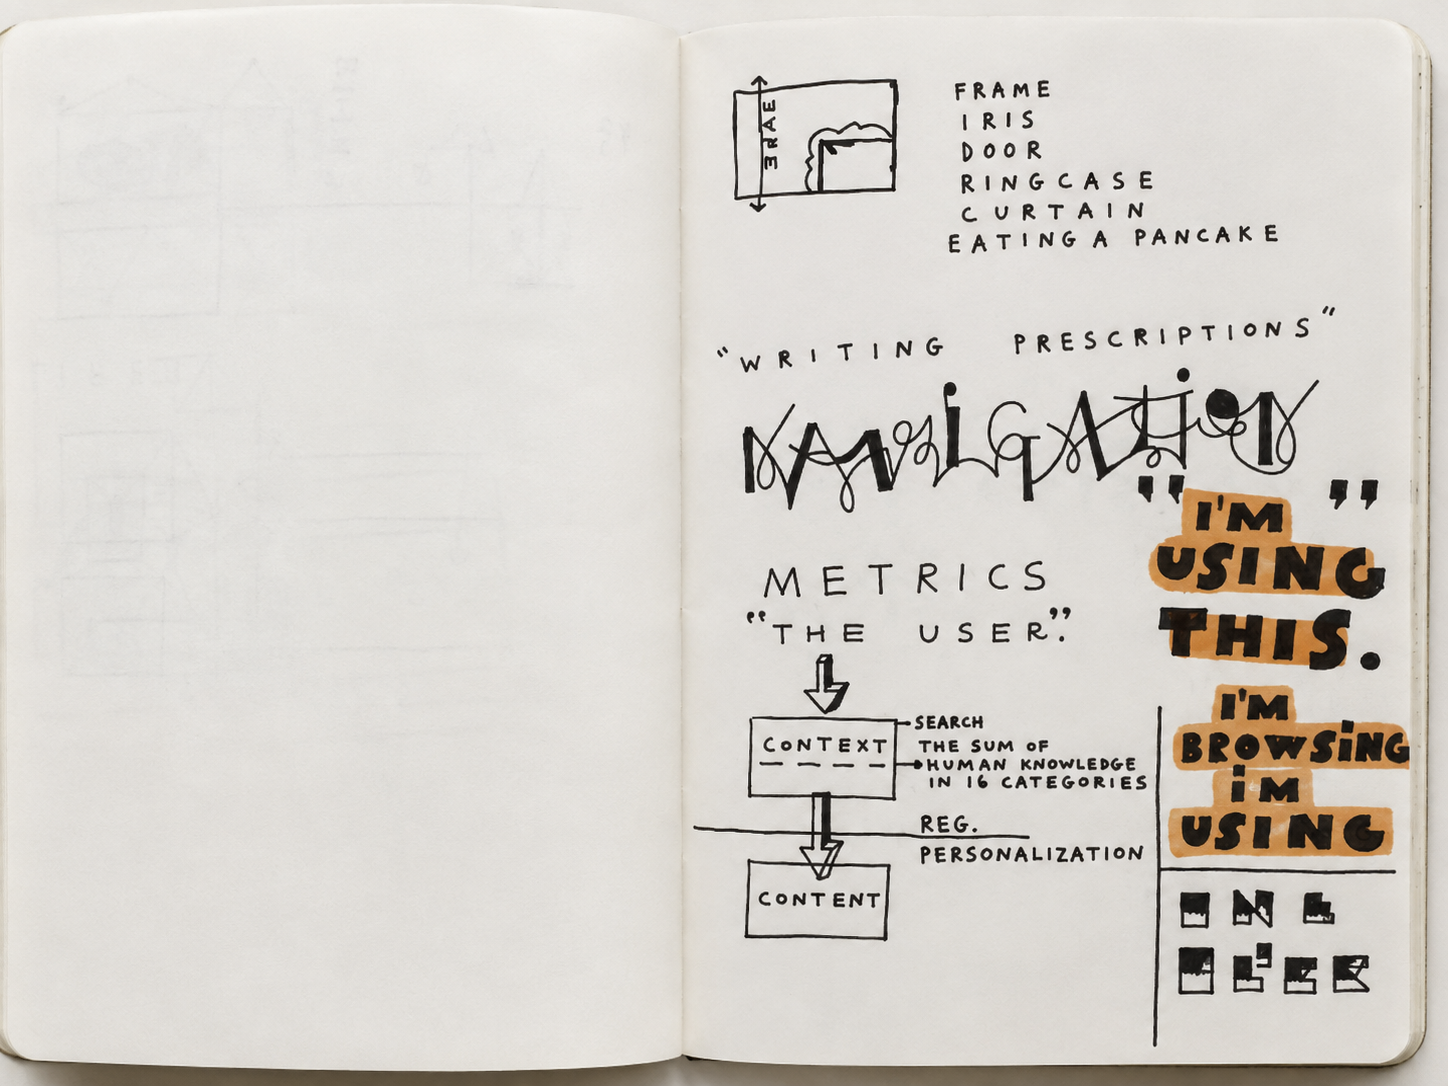 FRAME
IRIS
DOOR
RINGCASE
CURTAIN
EATING A PANCAKE
"WRITING PRESCRIPTIONS"
NAViGATiON
"I'M
USING
THIS."
METRICS
"THE USER".
CONTEXT
SEARCH
THE SUM OF
HUMAN KNOWLEDGE
IN 16 CATEGORIES
REG.
PERSONALIZATION
CONTENT
I'M
BROWSiNG
iM
USING